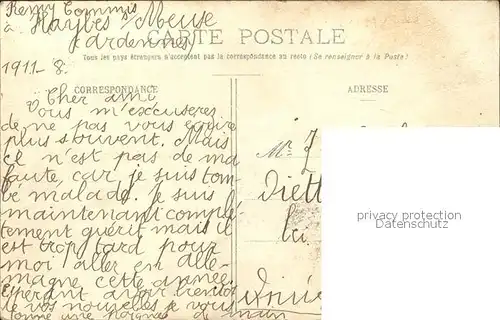 Remy Commis
à Haybes s/ Meuse
(Ardennes)
CARTE POSTALE
Tous les pays étrangers n'acceptent pas la correspondance au recto (Se renseigner à la Poste)
1911 8.
CORRESPONDANCE
ADRESSE
Cher ami
Vous m'excuserez
de ne pas vous écrire
plus souvent. Mais
ce n'est pas de ma
faute, car je suis tom-
bé malade. Je suis
maintenant complè-
tement guérit mais il
est trop tard pour
moi aller en Alle-
magne cette année.
Espérant avoir bientôt
de vos nouvelles je vous
donne une poignée de main
Mr
privacy protection
Datenschutz